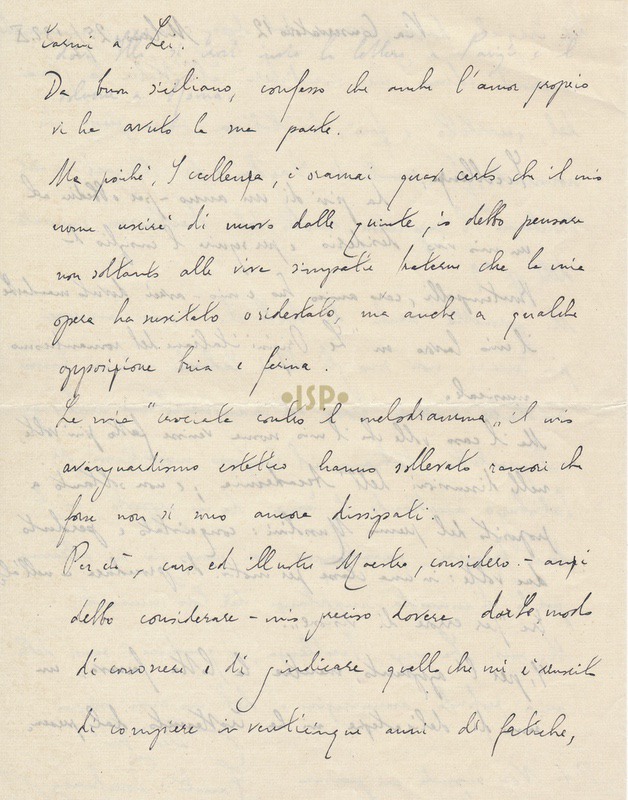 tarmi a Lei.
Da buon siciliano, confesso che anche l'amor proprio
vi ha avuto la sua parte.
Ma poichè, Eccellenza, è oramai quasi certo che il mio
nome uscirà di nuovo dalle quinte, io debbo pensare
non soltanto alle vive simpatie fraterne che la mia
opera ha suscitato o ridestato, ma anche a qualche
opposizione buia e ferina.
•ISP•
La mia "crociata contro il melodramma" il mio
avanguardismo estetico hanno sollevato rancori che
forse non si sono ancora dissipati.
Per ciò, caro ed illustre Maestro, considero - anzi
debbo considerare - mio preciso dovere darLe modo
di conoscere e di giudicare quello che mi è riuscito
di compiere in venticinque anni di fatiche,